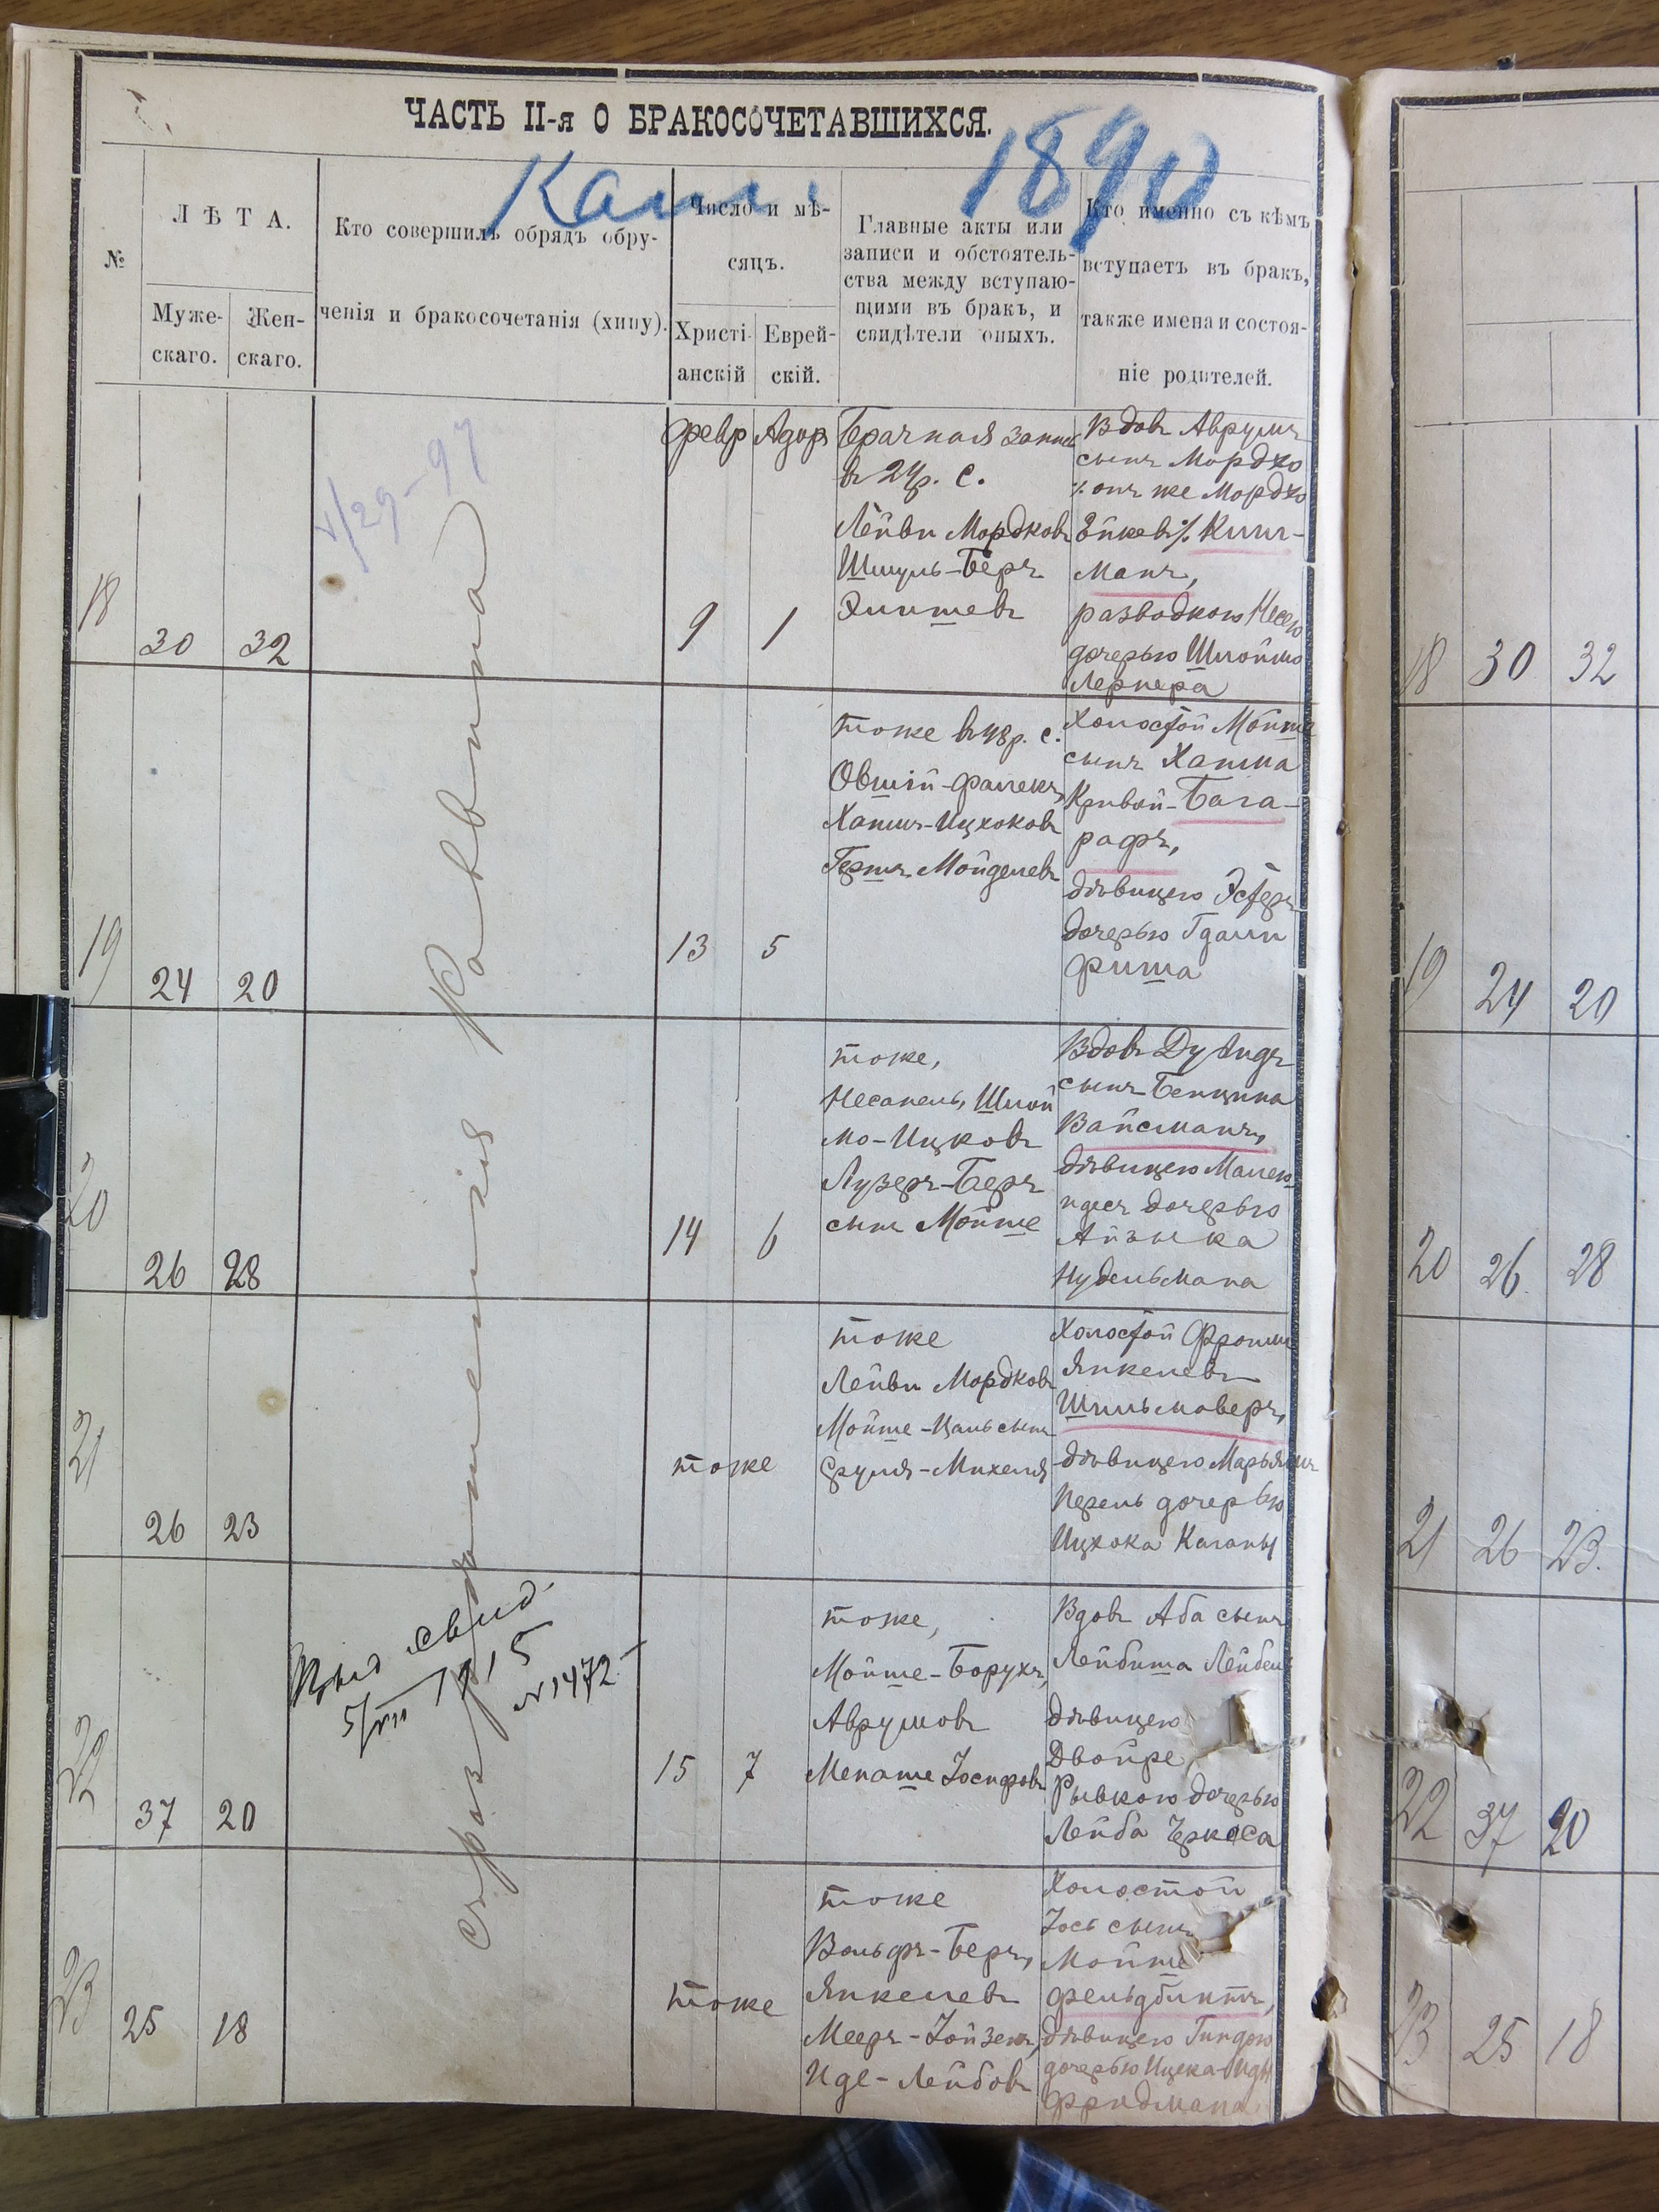 ЧАСТЬ II-я О БРАКОСОЧЕТАВШИХСЯ.
1890
№
ЛѢТА.
Муже-
скаго.
Жен-
скаго.
Кто совершилъ обрядъ обру-
ченія и бракосочетанія (хипу).
Число и мѣ-
сяцъ.
Христі-
анскій
Еврей-
скій.
Главные акты или
записи и обстоятель-
ства между вступаю-
щими въ бракъ, и
свидѣтели оныхъ.
Кто именно съ кѣмъ
вступаетъ въ бракъ,
также имена и состоя-
ніе родителей.
V/29-97
Раввина
18
30
32
февр
Адор
9
1
Брачная запись
Лейви Мордковъ
Шмуль-Беръ
Вдовъ Аврумъ
сынъ Мордко
он же Мордко
манъ,
разводкою Несею
дочерью Шлоймо
Лернера
19
24
20
13
5
тоже в 48 р. с.
Овшій-Фалекъ,
Хаимъ-Ицхоковъ
Холостой Мойше
сынъ Хаима
Кривой-Бага-
рафъ,
дѣвицею Эстеръ
дочерью Гдали
Фиша
20
26
28
14
6
тоже,
Несанель, Шлой
мо-Ицковъ
Лузеръ-Беръ
сын Мойше
Вдовъ Ду
сынъ Бенциона
Вайсманъ,
дѣвицею
дочерью
Айзыка
Нудельмана
21
26
23
тоже
тоже
Лейви Мордковъ
Мойше-Цаль сынъ
Сруля-Михеля
Холостой Фроим
Янкелевъ
Шильмоверъ,
дѣвицею Марьям
Перель дочерью
Ицхока Каганы
Выд свид.
5/VIII 1915
№1472
22
37
20
15
7
тоже,
Мойше-Борухъ,
Аврумовъ
Менаше Іосифовъ
Вдовъ Аба сынъ
Лейбиша
дѣвицею
Двойре
Рывкою дочерью
Лейба Черкеса
23
25
18
тоже
тоже
Вольфъ-Беръ,
Янкелевъ
Мееръ-Зойзеръ,
Иде-Лейбовъ
Холостой
Іось сынъ
Мойше
Фельдблитъ,
дѣвицею Гиндою
дочерью Ицека-Иды
Фридмана
18
30
32
19
24
20
20
26
28
21
26
23.
22
37
20
23
25
18